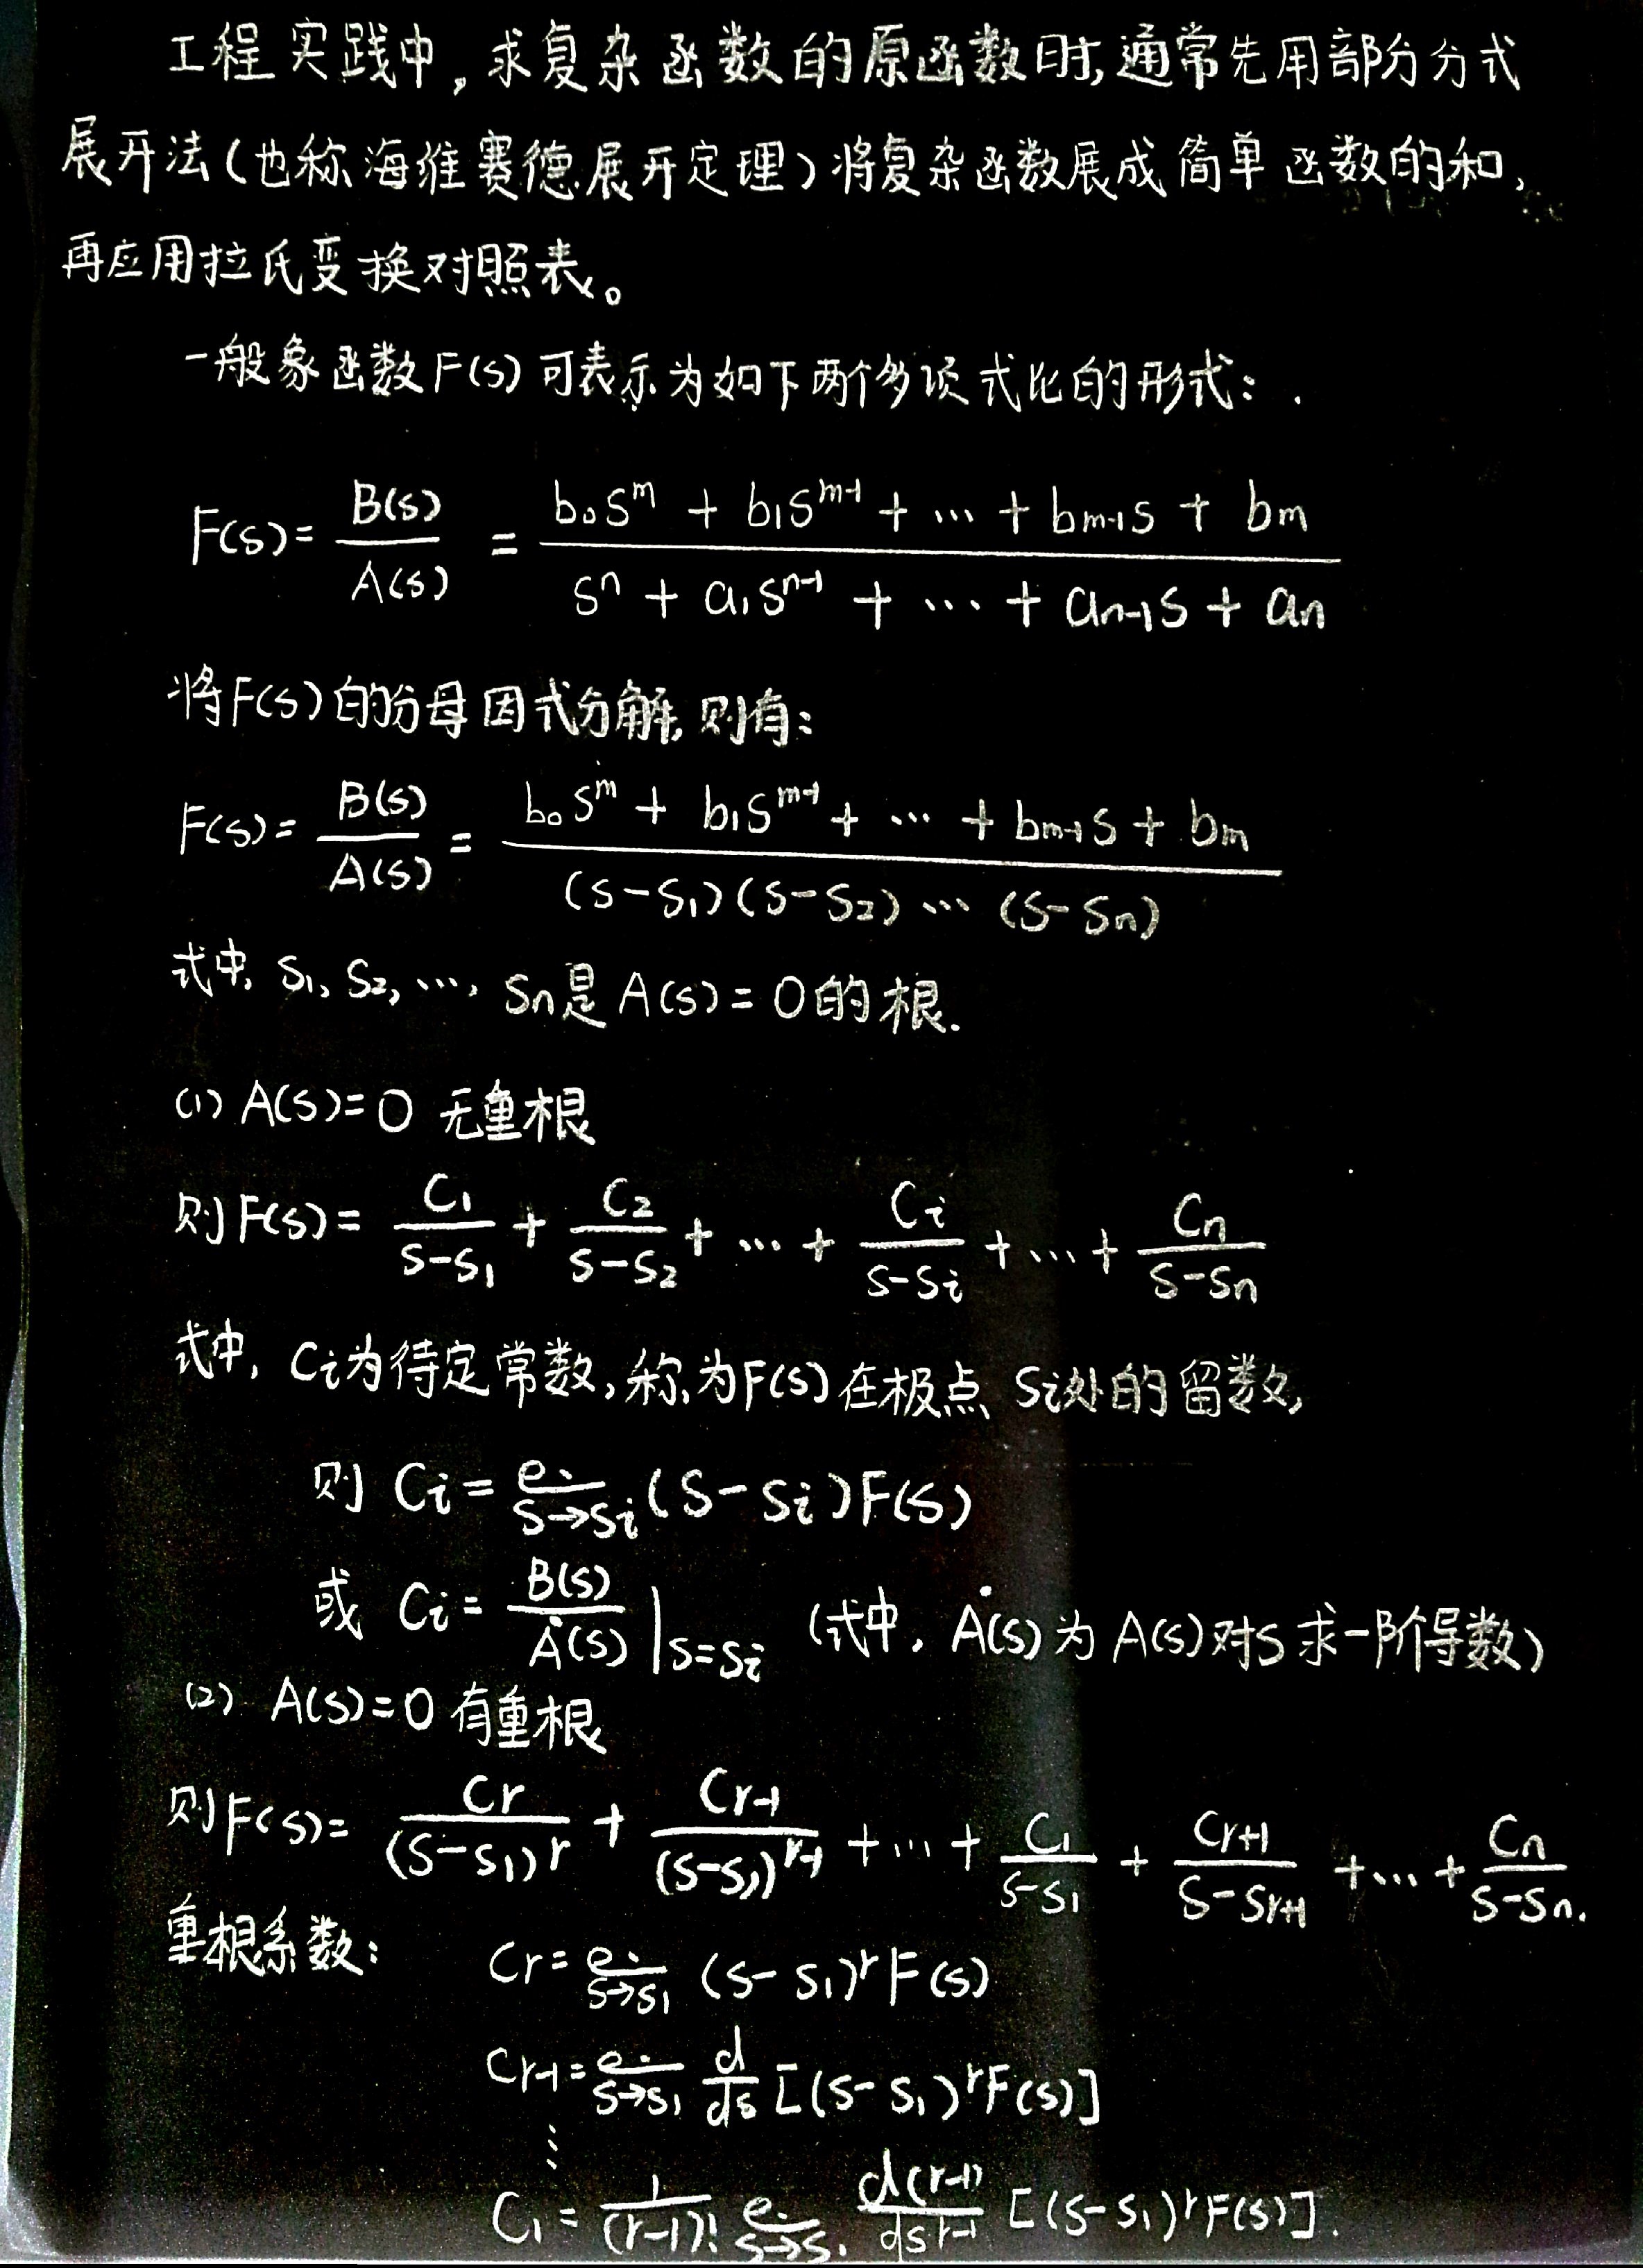 工程实践中,求复杂函数的原函数时,通常先用部分分式
展开法(也称海维赛德展开定理)将复杂函数展成简单函数的和,
再应用拉氏变换对照表。
一般象函数F(s)可表示为如下两个多项式比的形式:
F(s)= B(s)/A(s) = (b₀sᵐ + b₁sᵐ⁻¹ + … + bₘ₋₁s + bₘ)/(sⁿ + a₁sⁿ⁻¹ + … + aₙ₋₁s + aₙ)
将F(s)的分母因式分解,则有:
F(s)= B(s)/A(s) = (b₀sᵐ + b₁sᵐ⁻¹ + … + bₘ₋₁s + bₘ)/((s-s₁)(s-s₂)…(s-sₙ))
式中, s₁, s₂, …, sₙ是A(s)=0的根.
(1) A(s)=0 无重根
则F(s)= C₁/(s-s₁) + C₂/(s-s₂) + … + Cᵢ/(s-sᵢ) + … + Cₙ/(s-sₙ)
式中, Cᵢ为待定常数,称为F(s)在极点 sᵢ处的留数,
则 Cᵢ= ℓim_{s→sᵢ} (s-sᵢ)F(s)
或 Cᵢ= B(s)/Ȧ(s) |s=sᵢ (式中, Ȧ(s)为A(s)对s求一阶导数)
(2) A(s)=0 有重根
则F(s)= Cr/(s-s₁)ʳ + Cr-1/(s-s₁)ʳ⁻¹ + … + C₁/(s-s₁) + Cr+1/(s-sr+1) + … + Cₙ/(s-sₙ).
重根系数: Cr= ℓim_{s→s₁} (s-s₁)ʳF(s)
Cr-1= ℓim_{s→s₁} d/ds [(s-s₁)ʳF(s)]
⋮
C₁= 1/(r-1)! ℓim_{s→s₁} d(r-1)/dsʳ⁻¹ [(s-s₁)ʳF(s)].